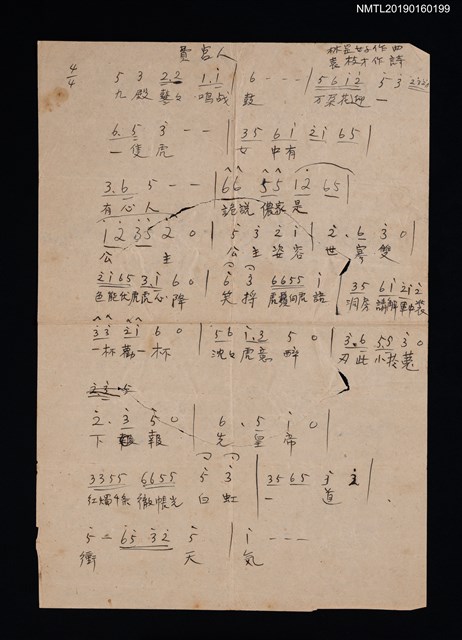 NMTL20190160199
費宮人
4/4
作曲
袁枚才作詩
5 3 2.2 1.1 | 6 - - - | 5 6 1 2 5 3
九殿 鳴 鼓 万 花迎一
6.5 3 - - | 35 61 21 65 |
一隻虎 女中有
3.6 5 - - | 66 55 12 65 |
有心人 詭說儂家是
12 35 2 0 | 5 3 2 1 | 2.6 3 0
公主 公主姿容世寡雙
2165 3.1 6 0 | 6 3 6655 1 | 35 61 212
色能伏虎虎心降 笑捋虎鬚向虎語 洞房請解軍中裝
33 21 6 0 | 56 1.3 5 0 | 3.6 5.5 3 0
一杯勸一杯 沈沈虎竟醉 刃此小於菟
2.3 5 0 | 6.5 1 0 |
下報 先皇帝
3355 6655 5 3 | 35 65 3 2 |
紅燭千條徹帳光 白虹 一道
5 - 65 32 5 | 1 - - -
衝天氣